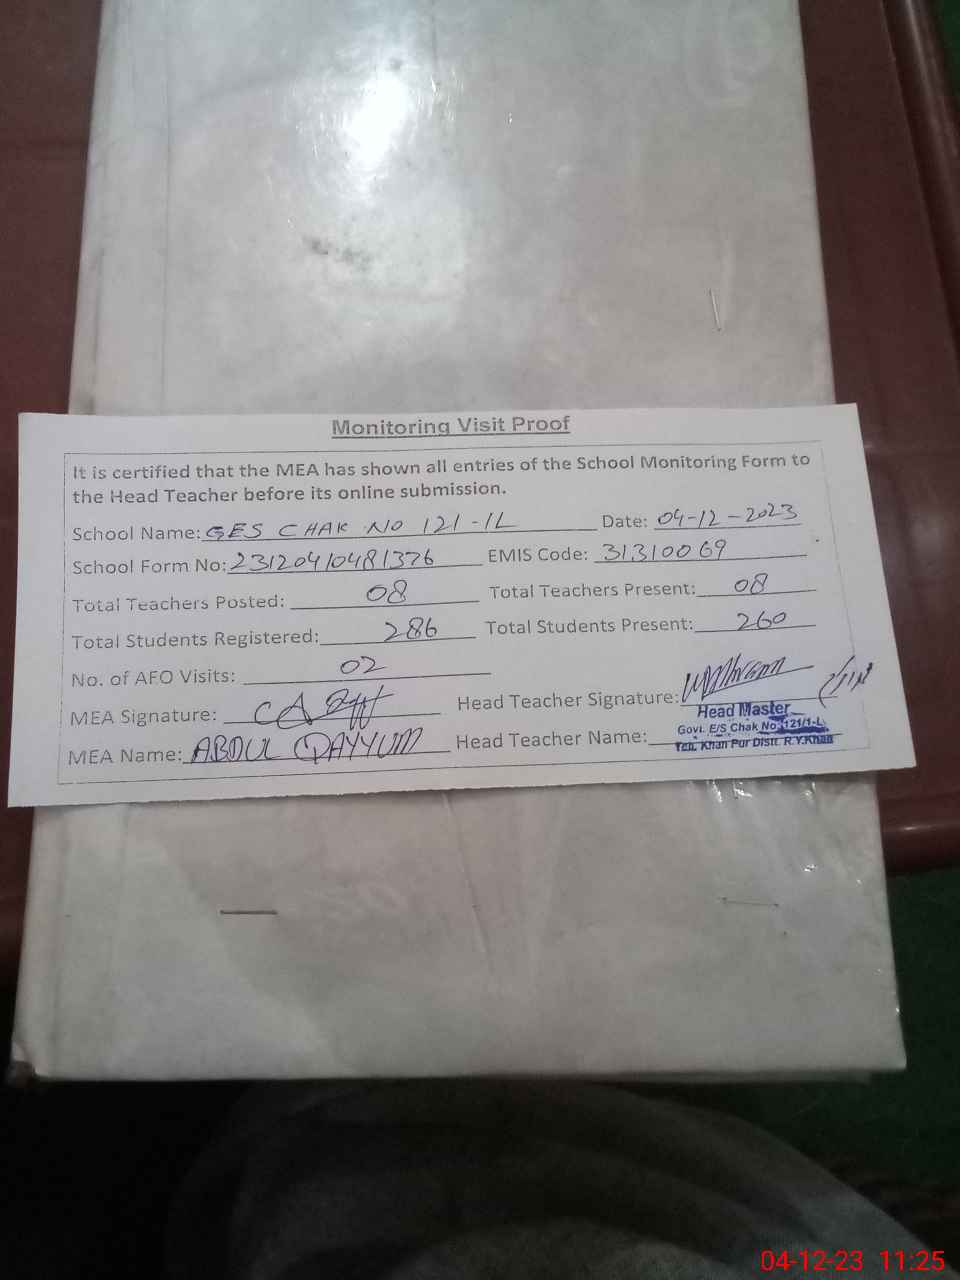 Monitoring Visit Proof
It is certified that the MEA has shown all entries of the School Monitoring Form to
the Head Teacher before its online submission.
School Name: GES CHAK NO 121-1L Date: 04-12-2023
School Form No: 23120410481376 EMIS Code: 31310069
Total Teachers Posted: 08 Total Teachers Present: 08
Total Students Registered: 286 Total Students Present: 260
No. of AEO Visits: 02
MEA Signature: Head Teacher Signature:
Head Master
Govt. E/S Chak No. 121/1-L
MEA Name: ABDUL QAYYUM Head Teacher Name:
Teh. Khan Pur Distt. R.Y.Khan
04-12-23 11:25